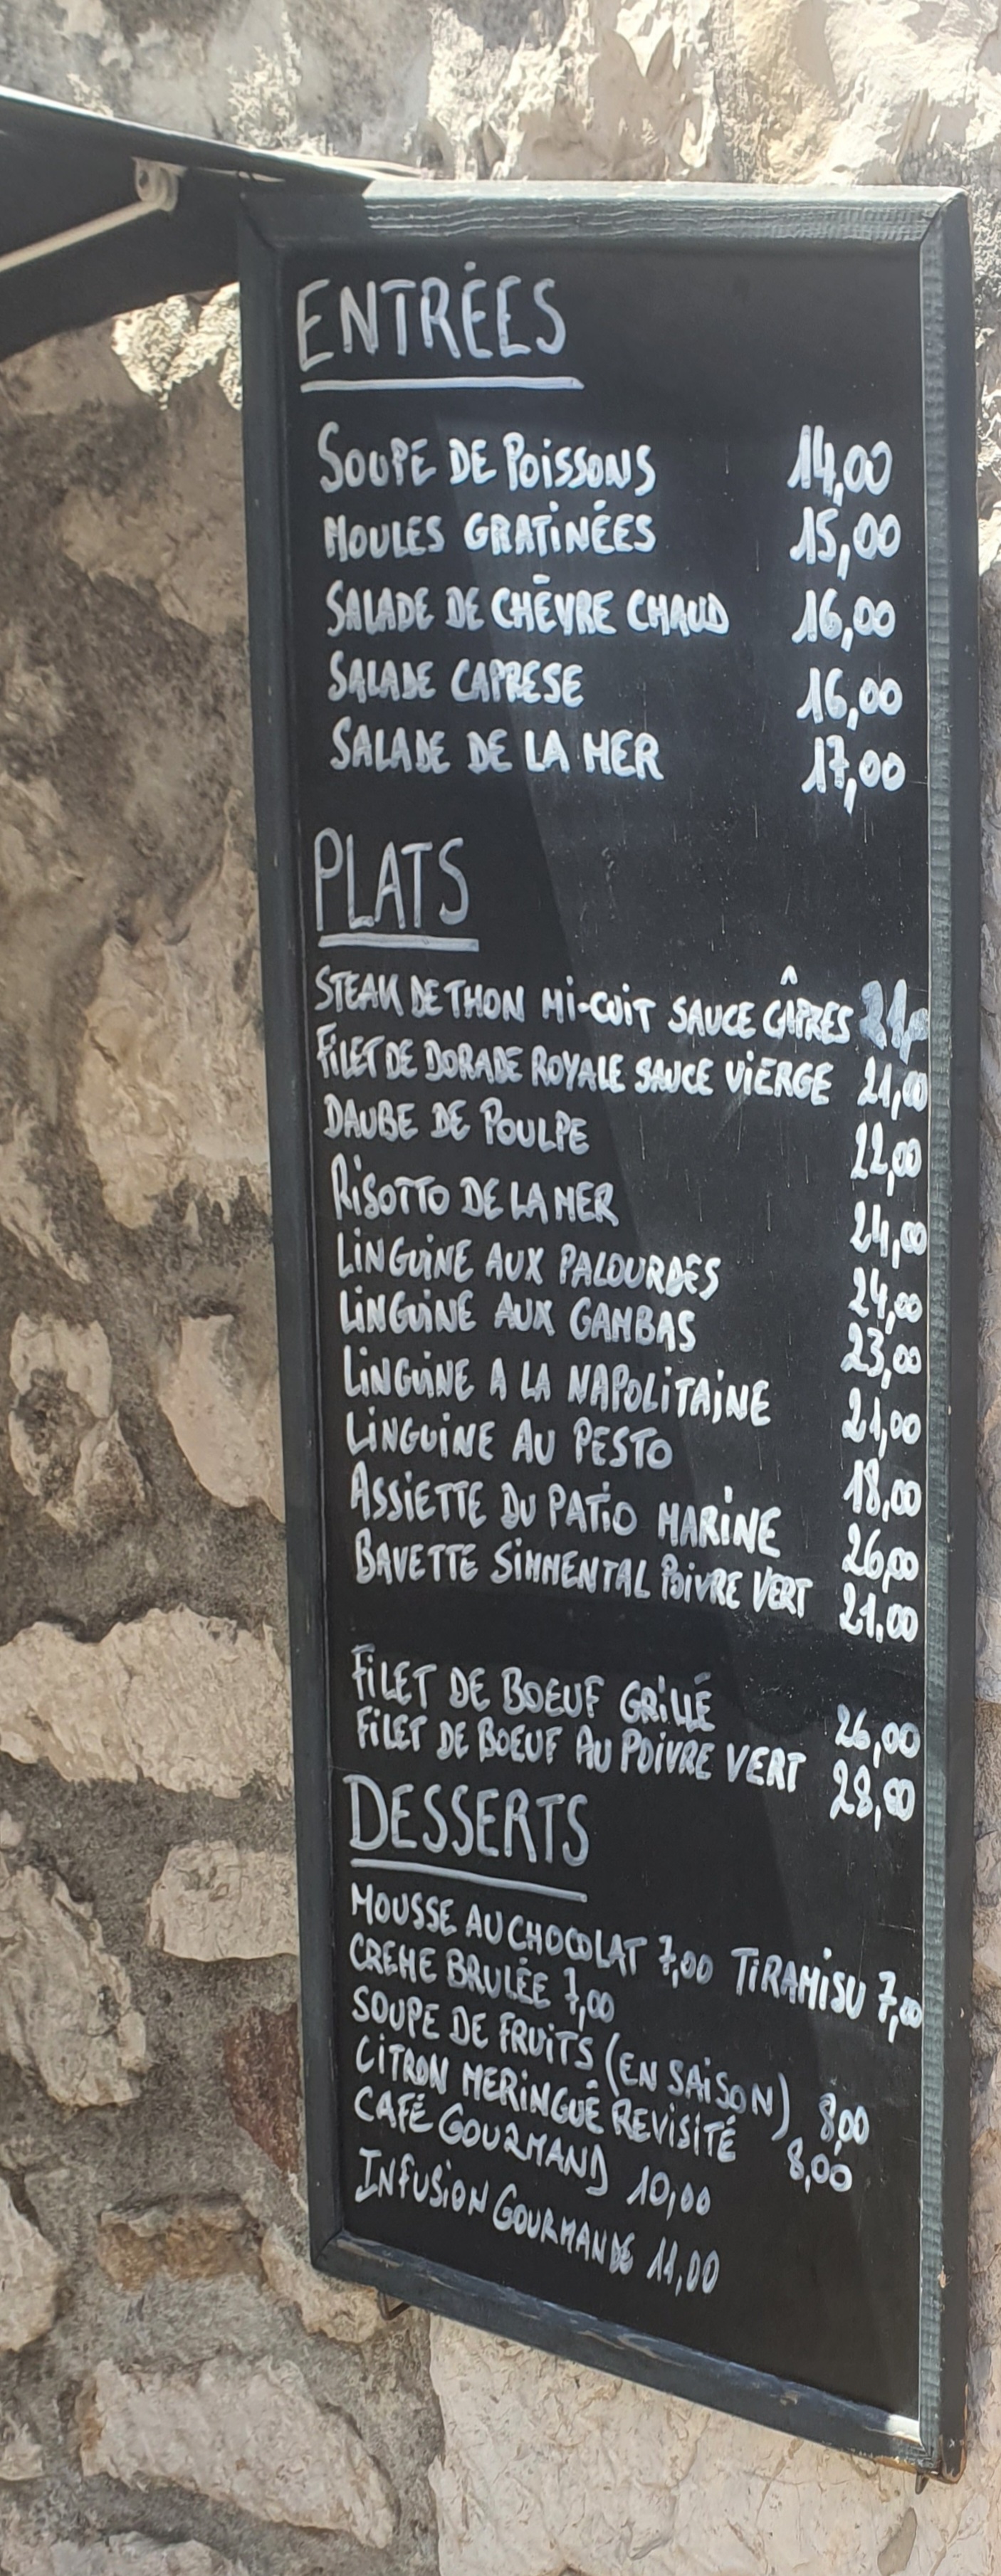 ENTRÉES
SOUPE DE POISSONS 14,00
MOULES GRATINÉES 15,00
SALADE DE CHÈVRE CHAUD 16,00
SALADE CAPRESE 16,00
SALADE DE LA MER 17,00
PLATS
STEAK DE THON MI-CUIT SAUCE CÂPRES
FILET DE DORADE ROYALE SAUCE VIERGE 21,00
DAUBE DE POULPE 22,00
RISOTTO DE LA MER 24,00
LINGUINE AUX PALOURDES 24,00
LINGUINE AUX GAMBAS 23,00
LINGUINE A LA NAPOLITAINE 21,00
LINGUINE AU PESTO 18,00
ASSIETTE DU PATIO MARINE 26,00
BAVETTE SIMMENTAL POIVRE VERT 21,00
FILET DE BOEUF GRILLÉ 26,00
FILET DE BOEUF AU POIVRE VERT 28,00
DESSERTS
MOUSSE AU CHOCOLAT 7,00 TIRAMISU 7,00
CREME BRULÉE 7,00
SOUPE DE FRUITS (EN SAISON) 8,00
CITRON MERINGUÉ REVISITÉ 8,00
CAFÉ GOURMAND 10,00
INFUSION GOURMANDE 11,00